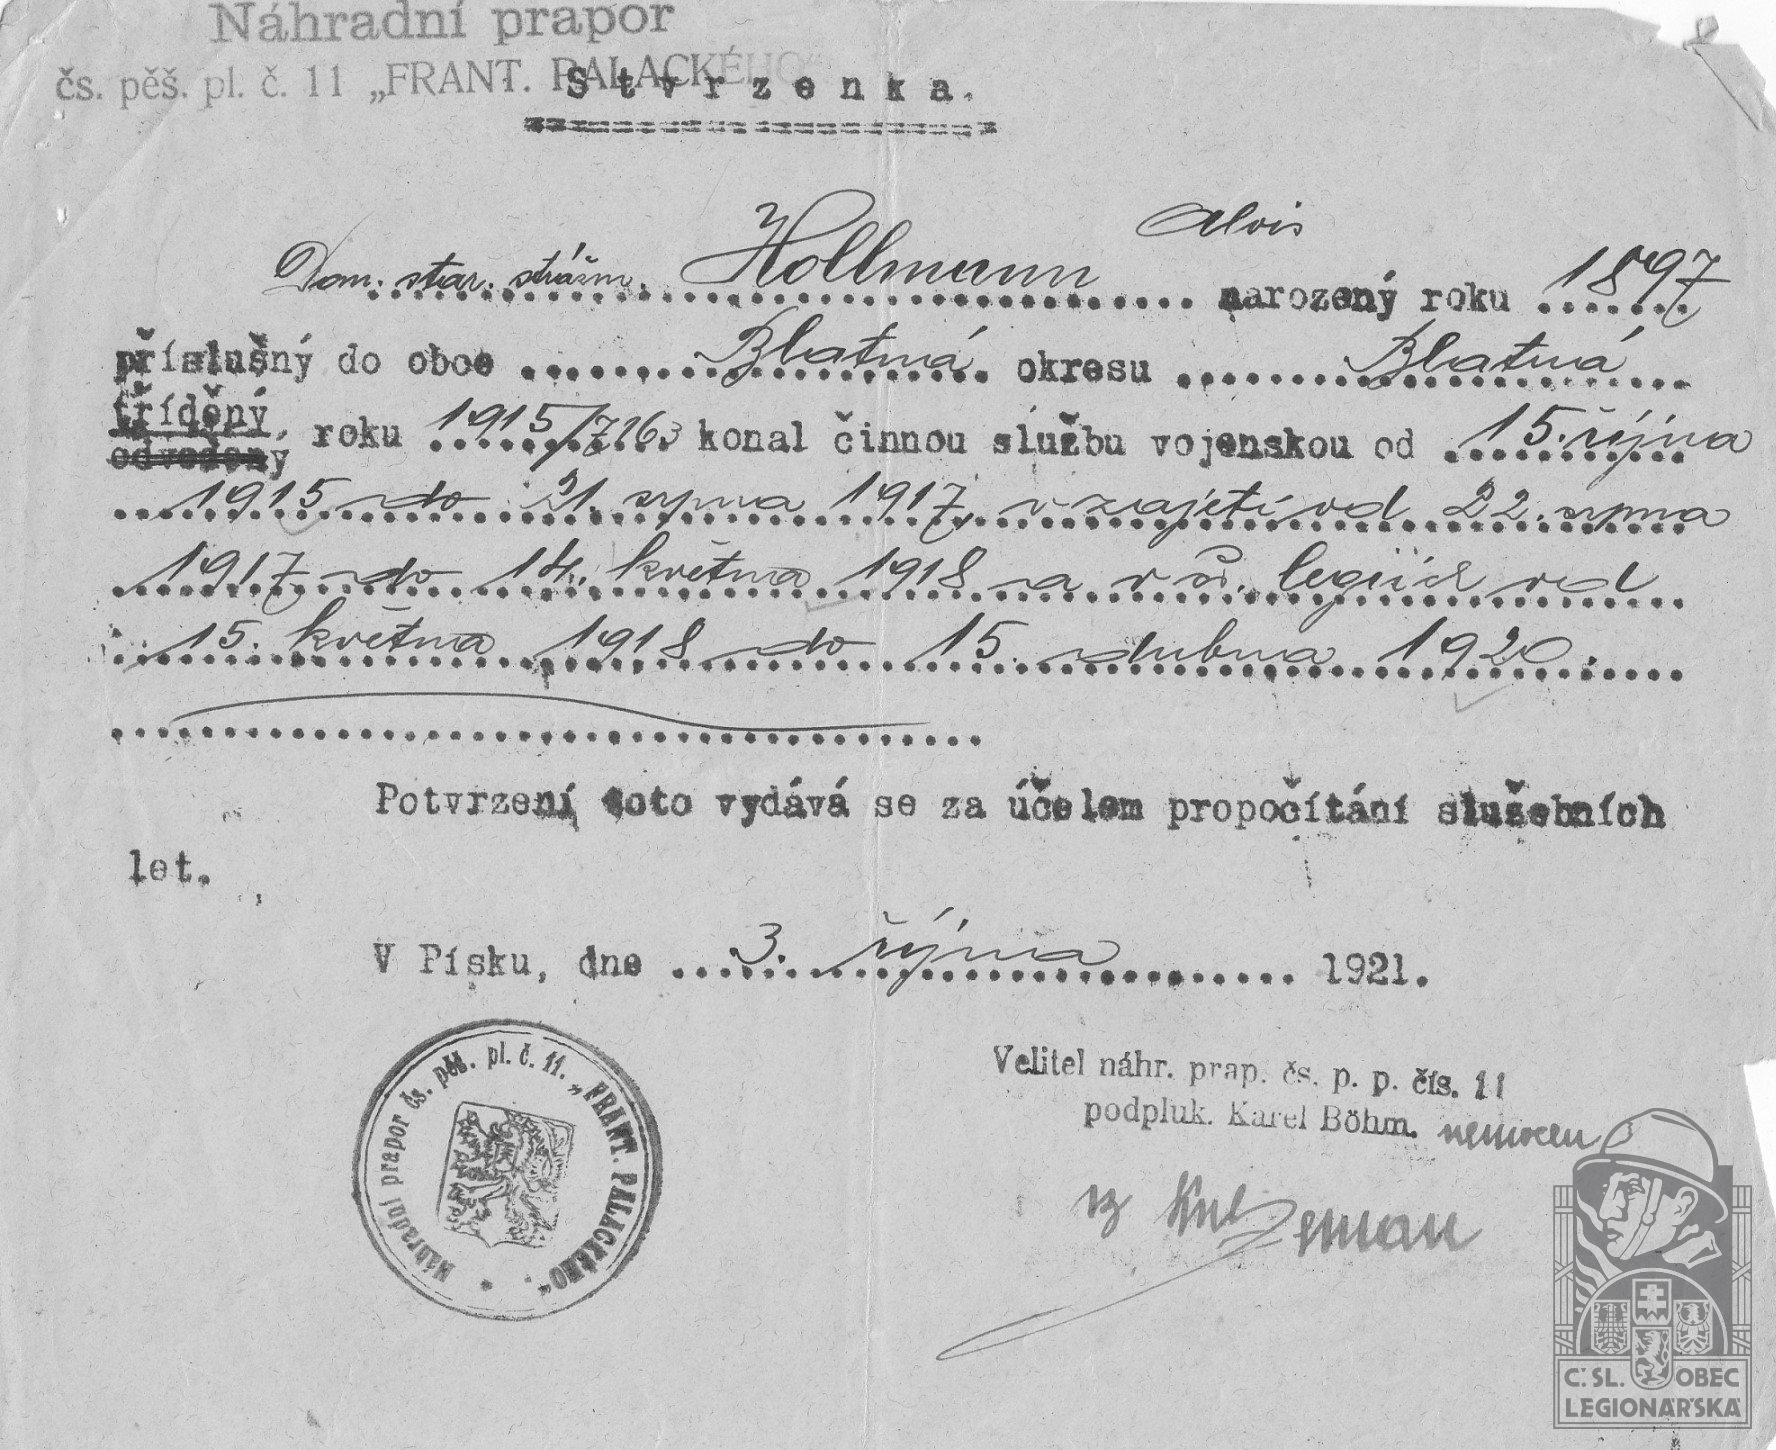 Náhradní prapor
čs. pěš. pl. č. 11 „FRANT. PALACKÉHO“
Stvrzenka.
Alois
star. strážm. Hollmann narozený roku 1897
příslušný do obce Blatná okresu Blatná
tříděný
odvedený roku 1915/7163 konal činnou službu vojenskou od 15. října
1915 do 21. srpna 1917, v zajetí od 22. srpna
1917 do 14. května 1918 a v čs. legiích od
15. května 1918 do 15. dubna 1920.
Potvrzení toto vydává se za účelem propočítání služebních
let.
V Písku, dne 3. října 1921.
Náhradní prapor čs. pěš. pl. č. 11. „FRANT. PALACKÉHO“
Velitel náhr. prap. čs. p. p. čís. 11
podpluk. Karel Böhm. nemocen
Č.SL. OBEC
LEGIONÁŘSKÁ